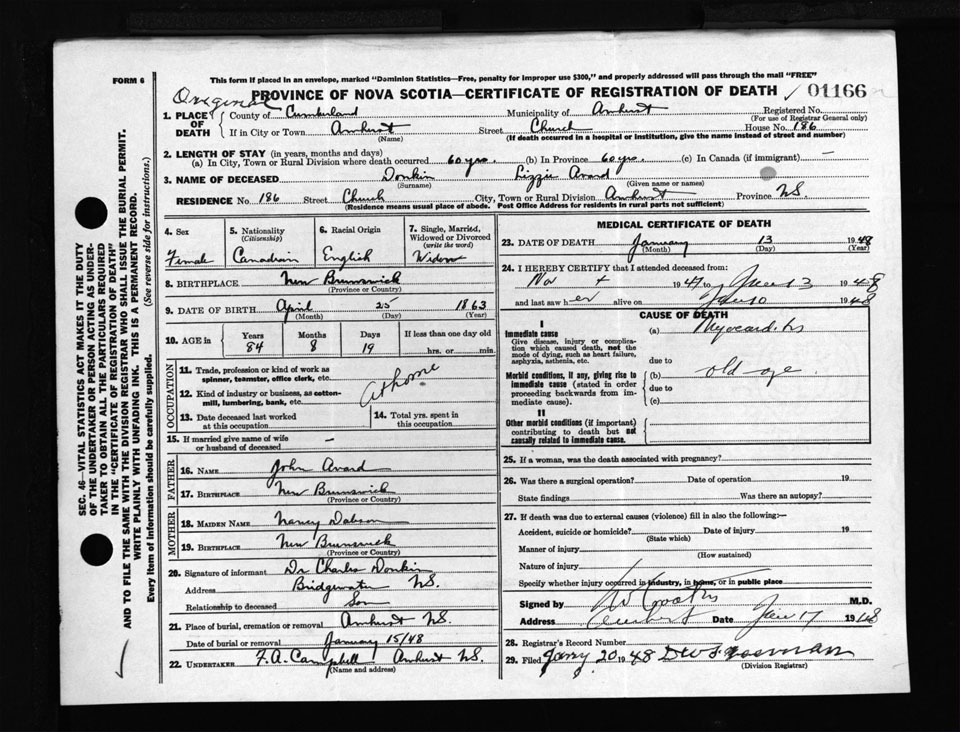 FORM 6
This form if placed in an envelope, marked "Dominion Statistics—Free, penalty for improper use $300," and properly addressed will pass through the mail "FREE"
Original
PROVINCE OF NOVA SCOTIA—CERTIFICATE OF REGISTRATION OF DEATH ✓ 01166
1. PLACE OF DEATH
County of Cumberland Municipality of Amherst Registered No.
(For use of Registrar General only)
If in City or Town Amherst Street Church House No. 186
(Name) (If death occurred in a hospital or institution, give the name instead of street and number)
2. LENGTH OF STAY (in years, months and days)
(a) In City, Town or Rural Division where death occurred 60 yrs. (b) In Province 60 yrs. (c) In Canada (if immigrant) —
3. NAME OF DECEASED Donkin Lizzie Avard
(Surname) (Given name or names)
RESIDENCE No. 186 Street Church City, Town or Rural Division Amherst Province N.S.
(Residence means usual place of abode. Post Office Address for residents in rural parts not sufficient)
4. Sex
Female
5. Nationality
(Citizenship)
Canadian
6. Racial Origin
English
7. Single, Married, Widowed or Divorced
(write the word)
Widow
8. BIRTHPLACE New Brunswick
(Province or Country)
9. DATE OF BIRTH April 25 1863
(Month) (Day) (Year)
10. AGE in
Years Months Days If less than one day old
84 8 19 hrs. or min.
OCCUPATION
11. Trade, profession or kind of work as
spinner, teamster, office clerk, etc.
At home
12. Kind of industry or business, as cotton-
mill, lumbering, bank, etc.
13. Date deceased last worked
at this occupation
14. Total yrs. spent in
this occupation
15. If married give name of wife
or husband of deceased —
FATHER
16. NAME John Avard
17. BIRTHPLACE New Brunswick
(Province or Country)
MOTHER
18. MAIDEN NAME Nancy Dobson
19. BIRTHPLACE New Brunswick
(Province or Country)
20. Signature of informant Dr Charles Donkin
Address Bridgewater N.S.
Relationship to deceased Son
21. Place of burial, cremation or removal Amherst N.S.
Date of burial or removal January 15/48
22. UNDERTAKER F. A. Campbell Amherst N.S.
(Name and address)
MEDICAL CERTIFICATE OF DEATH
23. DATE OF DEATH January 13 1948
(Month) (Day) (Year)
24. I HEREBY CERTIFY that I attended deceased from:
Nov 1947 to 13 1948
and last saw her alive on Jan 10 1948
CAUSE OF DEATH
I
Immediate cause
Give disease, injury or complica-
tion which caused death, not the
mode of dying, such as heart failure,
asphyxia, asthenia, etc.
(a) Myocarditis
due to
Morbid conditions, if any, giving rise to
immediate cause (stated in order
proceeding backwards from im-
mediate cause).
(b) old age
due to
(c)
II
Other morbid conditions (if important)
contributing to death but not
causally related to immediate cause.
25. If a woman, was the death associated with pregnancy?
26. Was there a surgical operation? Date of operation 19
State findings Was there an autopsy?
27. If death was due to external causes (violence) fill in also the following:—
Accident, suicide or homicide? Date of injury 19
(State which)
Manner of injury
(How sustained)
Nature of injury
Specify whether injury occurred in industry, in home, or in public place
Signed by M.D.
Address Amherst Date Jan 17 1948
28. Registrar's Record Number
29. Filed Jany 20 1948
(Division Registrar)
SEC. 46—VITAL STATISTICS ACT MAKES IT THE DUTY
OF THE UNDERTAKER OR PERSON ACTING AS UNDER-
TAKER TO OBTAIN ALL THE PARTICULARS REQUIRED
IN THE "CERTIFICATE OF REGISTRATION OF DEATH"
AND TO FILE THE SAME WITH THE DIVISION REGISTRAR WHO SHALL ISSUE THE BURIAL PERMIT.
WRITE PLAINLY WITH UNFADING INK. THIS IS A PERMANENT RECORD.
Every item of Information should be carefully supplied. (See reverse side for instructions.)